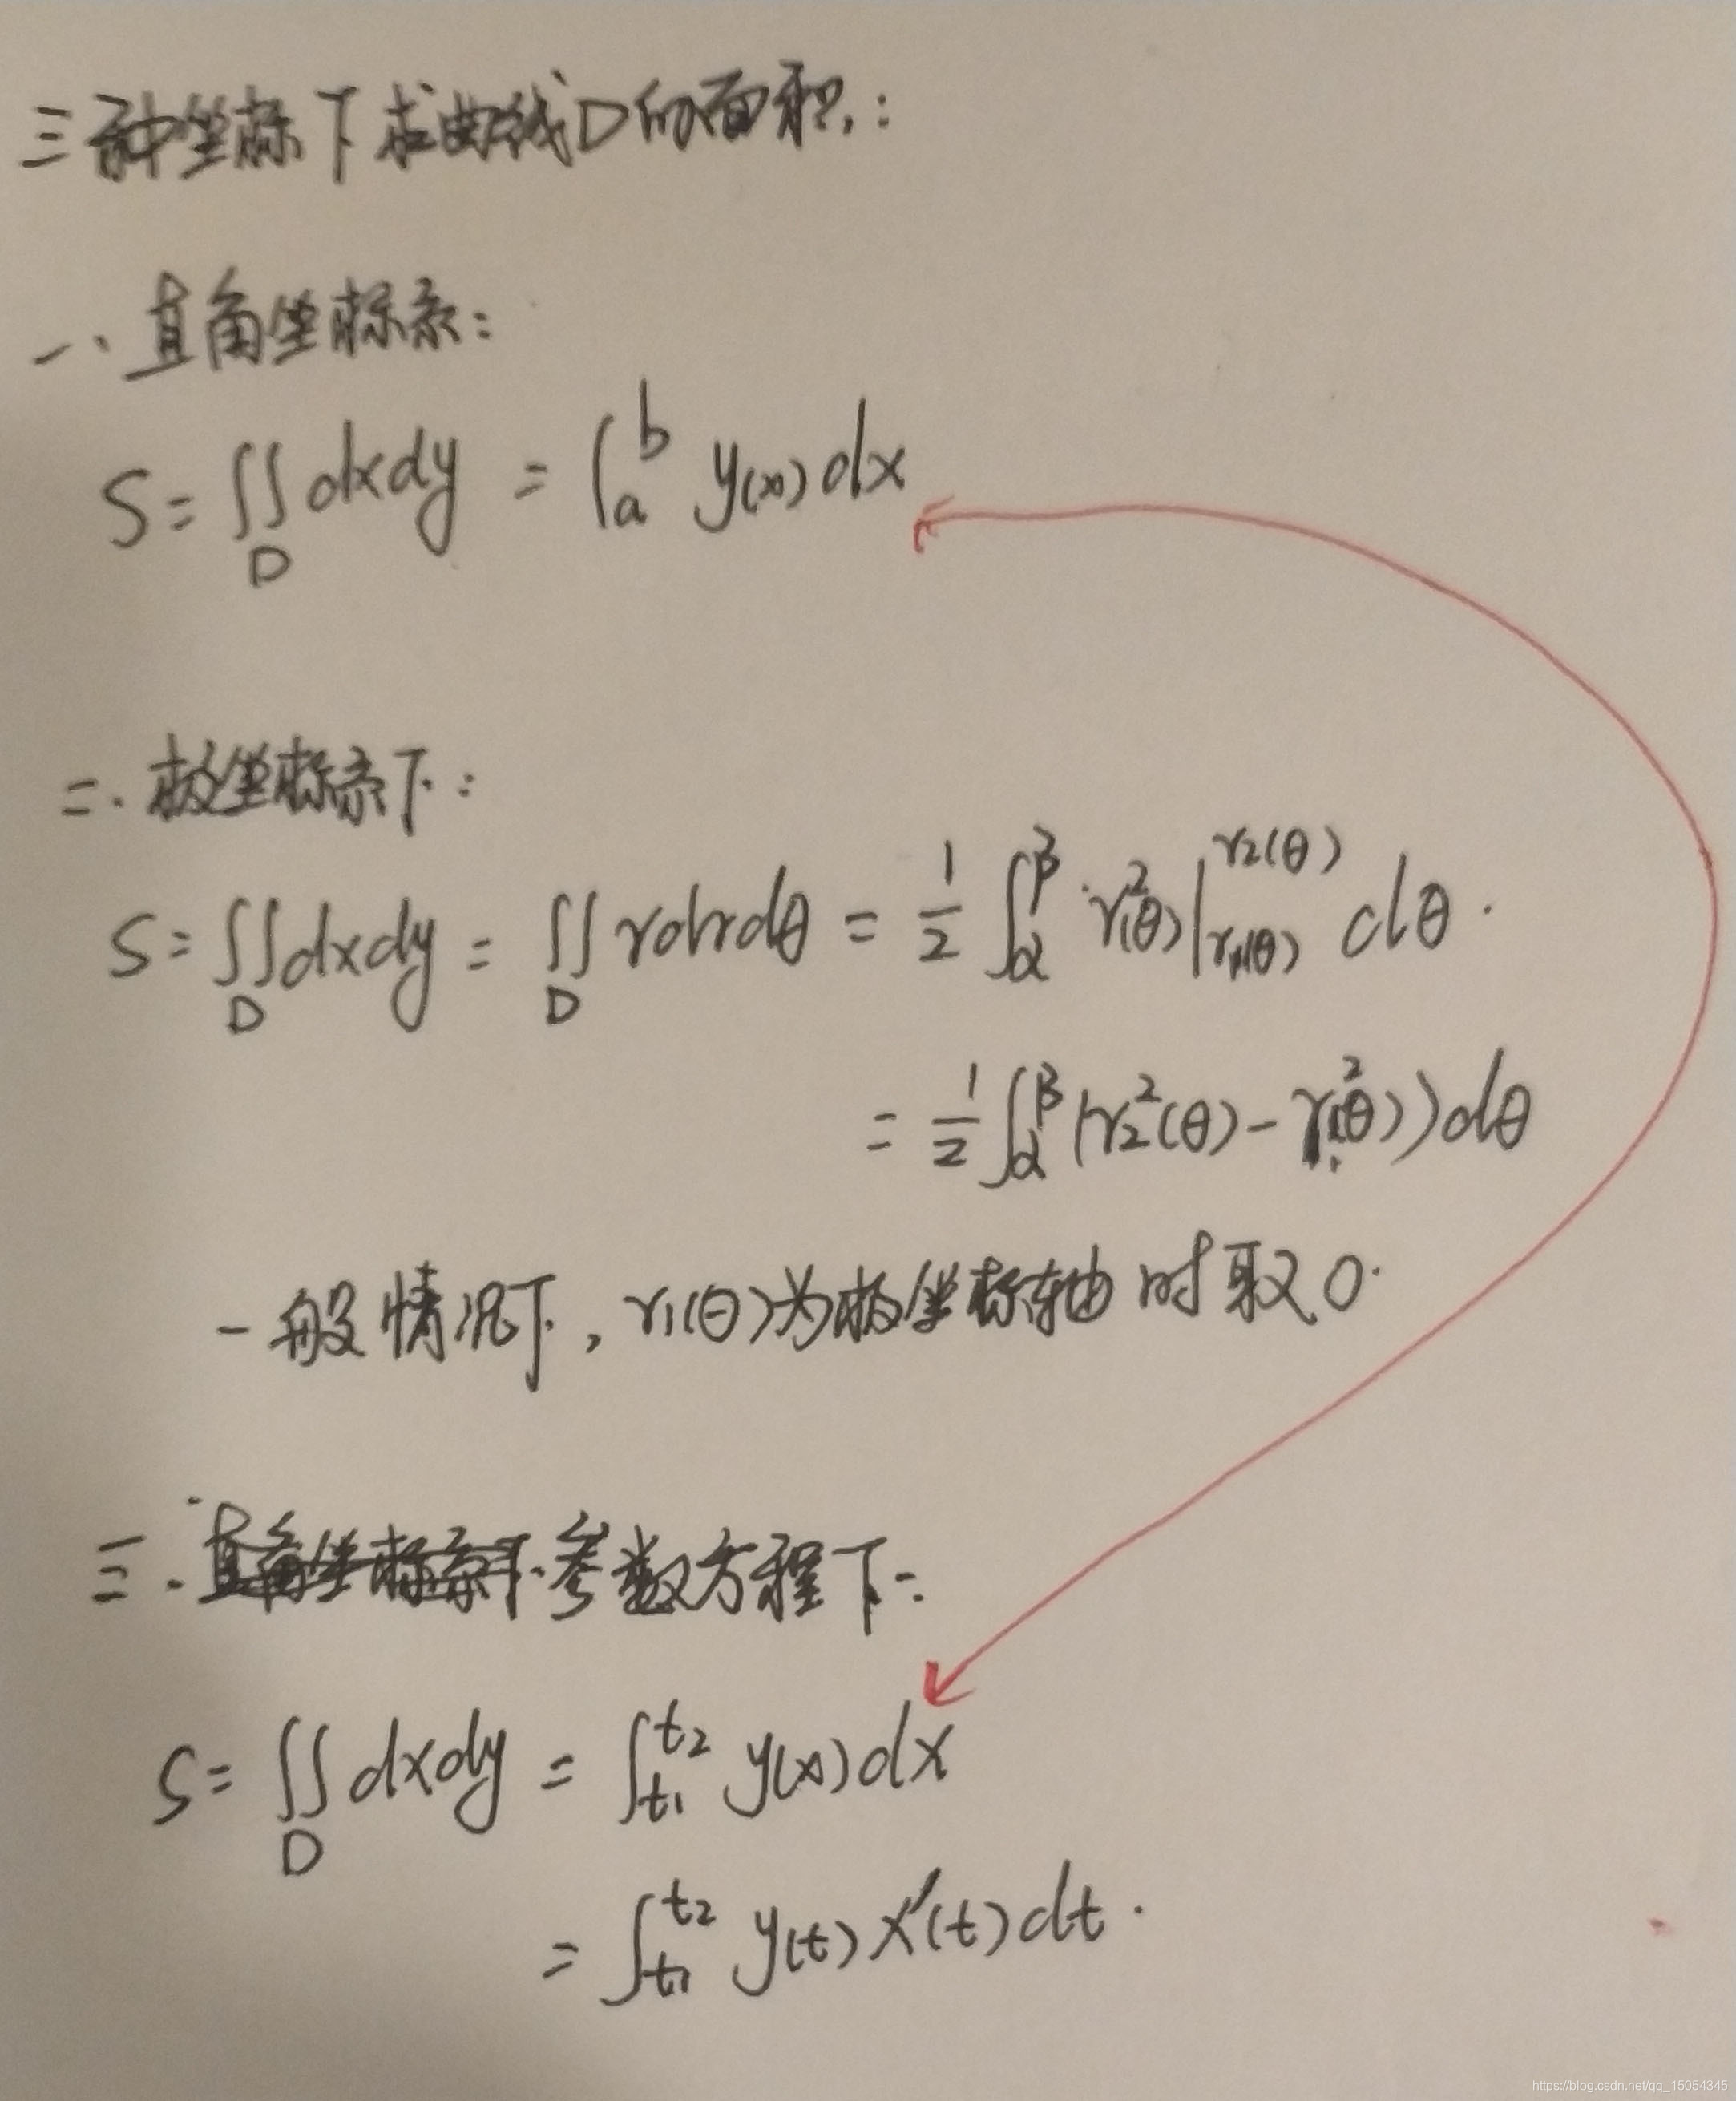 三种坐标下求曲线D的面积:
一、直角坐标系:
S=∬_D dxdy = ∫_a^b y(x)dx
二.极坐标系下:
S=∬_D dxdy = ∬_D rdrdθ = 1/2 ∫_α^β r²(θ)|_{r₁(θ)}^{r₂(θ)} dθ.
= 1/2 ∫_α^β (r₂²(θ)-r₁²(θ))dθ
一般情况下,r₁(θ)为极坐标轴时取0.
三.直角坐标系下.参数方程下:
S=∬_D dxdy = ∫_{t₁}^{t₂} y(x)dx
= ∫_{t₁}^{t₂} y(t)x'(t)dt.
https://blog.csdn.net/qq_15054345